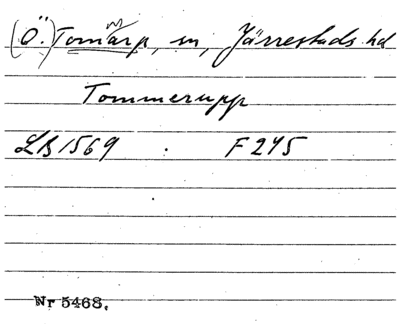 (Ö.) Tomarp, sn, Järrestads hd
Tommerupp
LB 1569 : F 245
Nr 5468.